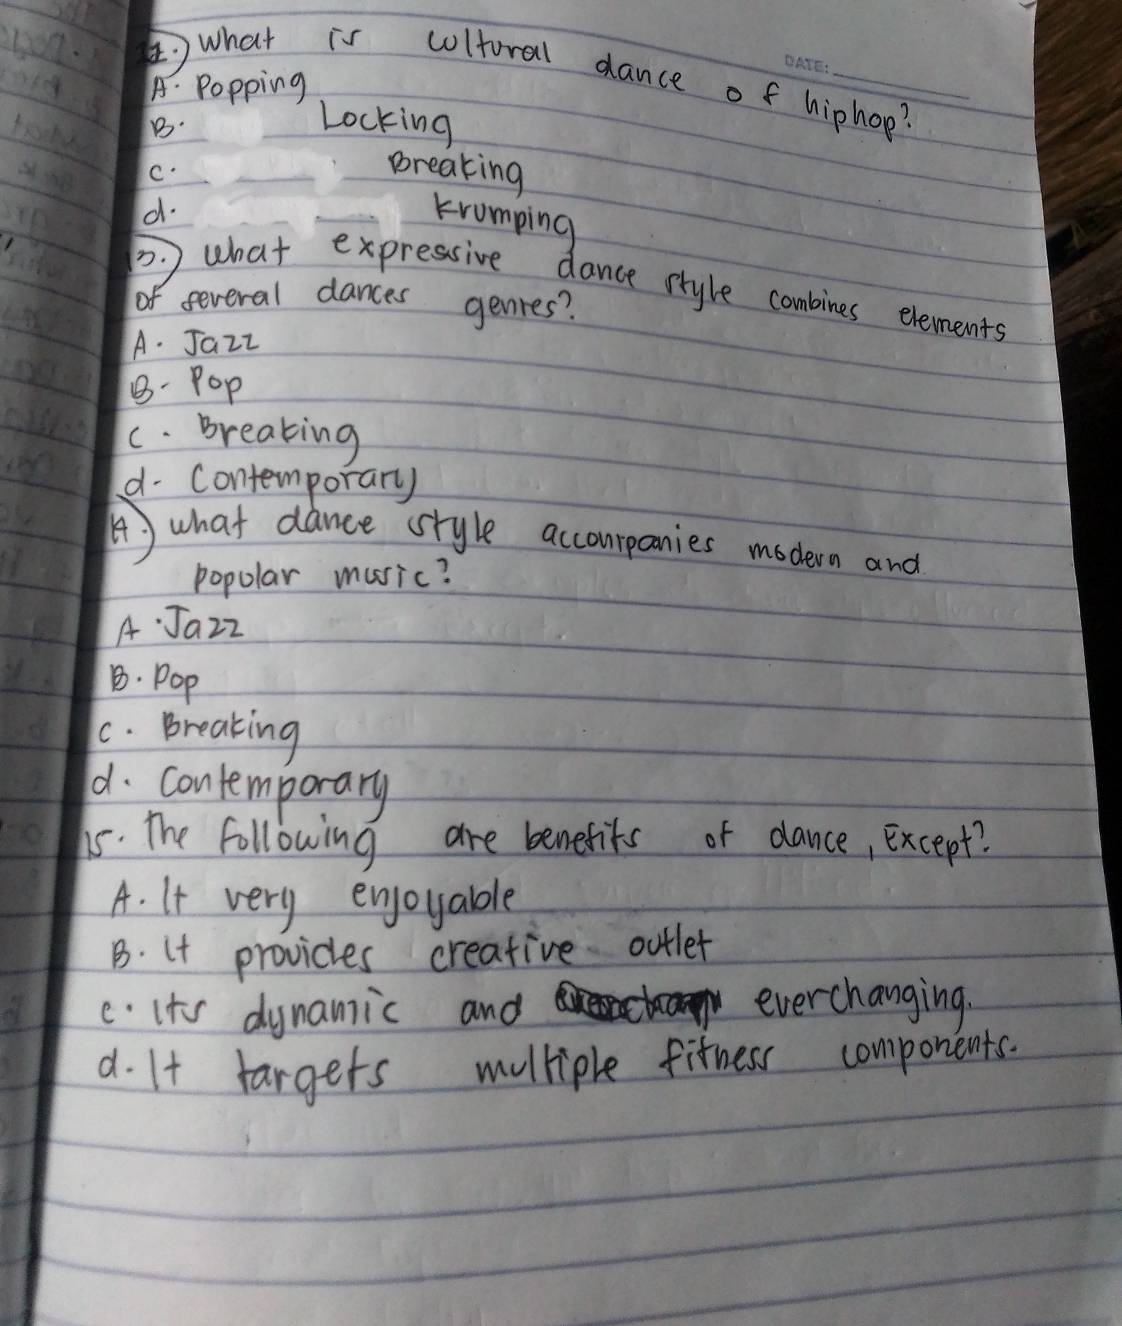 What is cultural dance of hiphop?
DATE:
A. Popping
B. Locking
c. Breaking
d. Krumping
13.) What expressive dance style combines elements
of several dances genres?
A. Jazz
B. Pop
C. Breaking
d. Contemporary
14.) what dance style accompanies modern and
popular music?
A. Jazz
B. Pop
C. Breaking
d. Contemporary
15. The following are benefits of dance, Except?
A. It very enjoyable
B. It provides creative outlet
c. Its dynamic and everchanging.
d. It targets multiple fitness components.